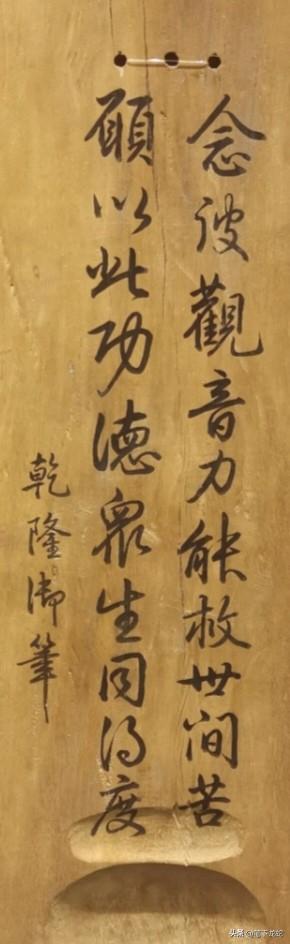 念彼觀音力能救世間苦
願以此功德眾生同得度
乾隆御筆
头条